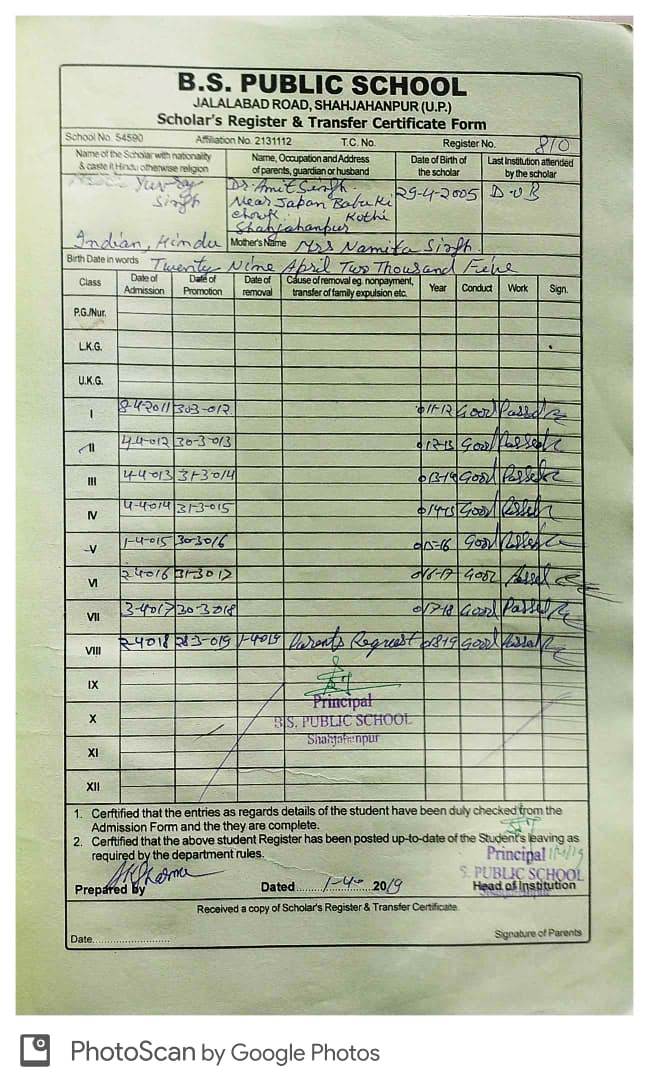 B.S. PUBLIC SCHOOL
JALALABAD ROAD, SHAHJAHANPUR (U.P.)
Scholar's Register & Transfer Certificate Form
School No. 54590 Affiliation No. 2131112 T.C. No. Register No. 810
Name of the Scholar with nationality & caste it Hindu otherwise religion
Name, Occupation and Address of parents, guardian or husband
Date of Birth of the scholar
Last Institution attended by the scholar
Yuvraj
Singh
Indian, Hindu
Dr. Amit Singh
Near Japan Babu Ki
Chowk Kothi
Shahjahanpur
29-4-2005
Mother's Name Mrs Namita Singh.
Birth Date in words Twenty Nine April Two Thousand Five
Class Date of Admission Date of Promotion Date of removal Cause of removal eg. nonpayment, transfer of family expulsion etc. Year Conduct Work Sign.
P.G./Nur.
L.K.G.
U.K.G.
I 8-4-2011 30-3-012 011-12 Good Passed
II 4-4-012 30-3-013 012-13 Good Passed
III 4-4-013 31-3-014 013-14 Good Passed
IV 4-4-014 31-3-015 014-15 Good Passed
V 1-4-015 30-3-016 015-16 Good Passed
VI 2-4-016 31-3-017 016-17 Good Passed
VII 3-4-017 30-3-018 017-18 Good Passed
VIII 2-4-018 28-3-019 1-4-019 Parents Request 018-19 Good Passed
IX
Principal
X
B.S. PUBLIC SCHOOL
Shahjahanpur
XI
XII
1. Cerftified that the entries as regards details of the student have been duly checked from the
Admission Form and the they are complete.
2. Cerftified that the above student Register has been posted up-to-date of the Student's leaving as
required by the department rules.
Principal
S. PUBLIC SCHOOL
Prepared by Dated 1-4- 2019 Head of Institution
Received a copy of Scholar's Register & Transfer Certificate
Date Signature of Parents
PhotoScan by Google Photos